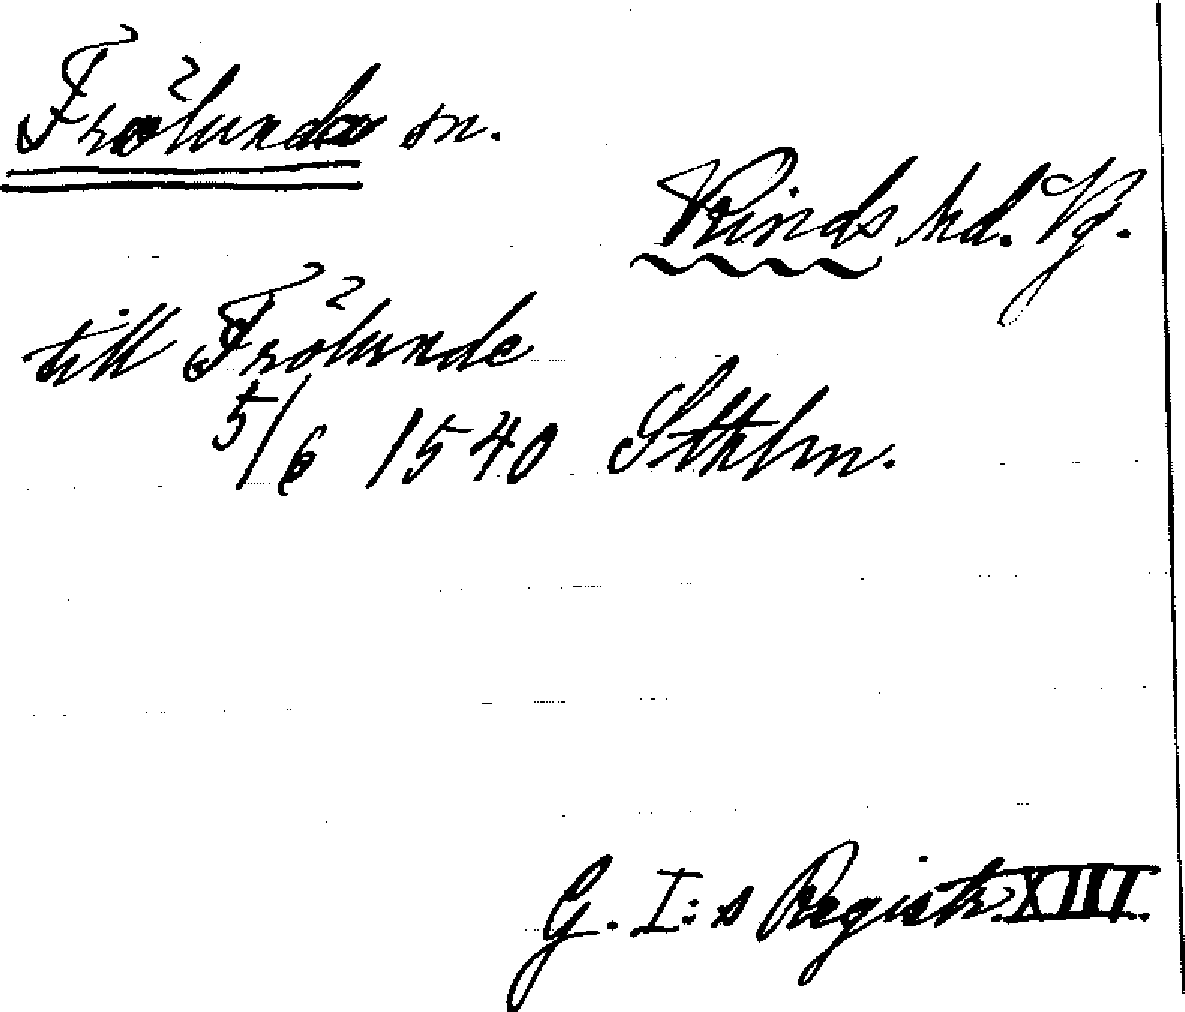 Frölunda sn.
Kinds hd. Vg.
till Frölunde
5/6 1540 Sthlm.
G. I:s Registr XIII